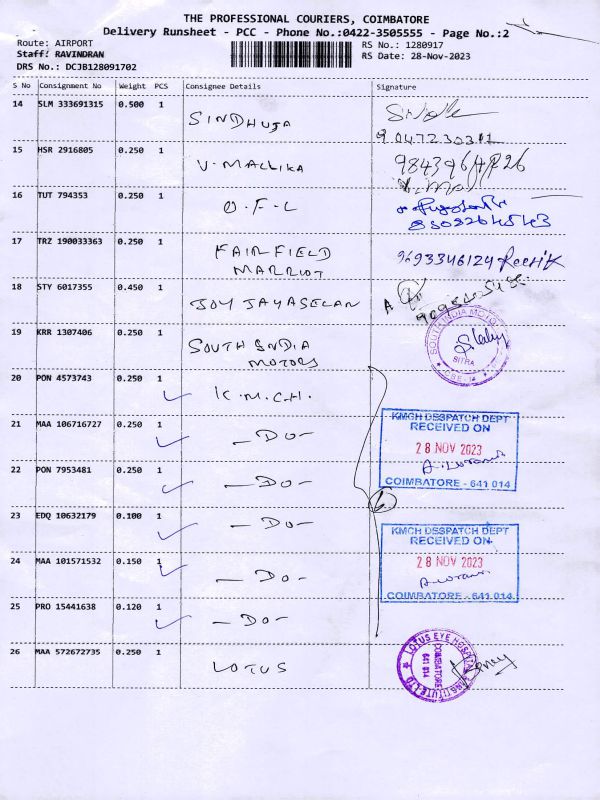 THE PROFESSIONAL COURIERS, COIMBATORE
Delivery Runsheet - PCC - Phone No.:0422-3505555 - Page No.:2
Route: AIRPORT
RS No.: 1280917
Staff: RAVINDRAN
RS Date: 28-Nov-2023
DRS No.: DCJB128091702
S No Consignment No Weight PCS Consignee Details Signature
14 SLM 333691315 0.500 1 SINDHUJA
15 HSR 2916805 0.250 1 V. MALLIKA
16 TUT 794353 0.250 1 O.F.C
17 TRZ 190033363 0.250 1 FAIRFIELD
MARRIOT
18 STY 6017355 0.450 1 JOY JAYASELAN
19 KRR 1307406 0.250 1 SOUTH INDIA
MOTORS
SOUTH INDIA MOTORS
SITRA
20 PON 4573743 0.250 1 K.M.C.H.
21 MAA 106716727 0.250 1 - DO -
KMCH DESPATCH DEPT
RECEIVED ON
28 NOV 2023
COIMBATORE - 641 014
22 PON 7953481 0.250 1 - DO -
6
23 EDQ 10632179 0.100 1 - DO -
KMCH DESPATCH DEPT
RECEIVED ON
28 NOV 2023
COIMBATORE - 641 014
24 MAA 101571532 0.150 1 - DO -
25 PRO 15441638 0.120 1 - DO -
26 MAA 572672735 0.250 1 LOTUS
LOTUS EYE HOSPITAL
INSTITUTE LTD
COIMBATORE
641 014